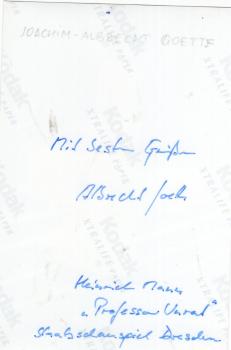 JOACHIM-ALBRECHT GOETTE
Mit besten Grüßen
Albrecht Goette
Heinrich Mann
"Professor Unrat"
Staatsschauspiel Dresden
Kodak
XTRALIFE